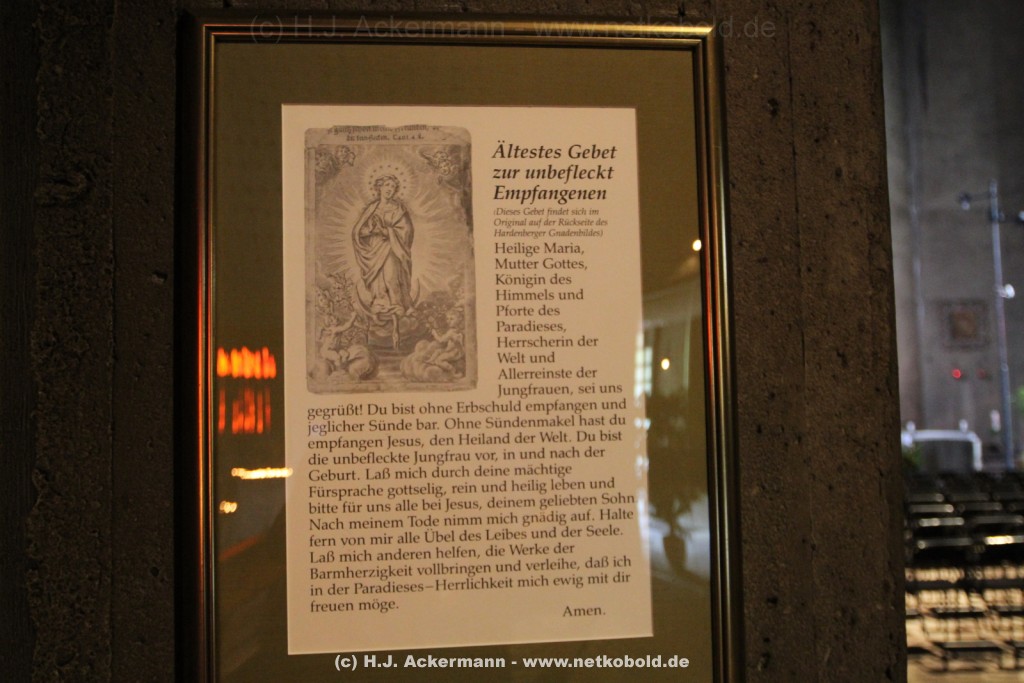 (c) H.J. Ackermann - www.netkobold.de
Ältestes Gebet
zur unbefleckt
Empfangenen
(Dieses Gebet findet sich im
Original auf der Rückseite des
Hardenberger Gnadenbildes)
Heilige Maria,
Mutter Gottes,
Königin des
Himmels und
Pforte des
Paradieses,
Herrscherin der
Welt und
Allerreinste der
Jungfrauen, sei uns
gegrüßt! Du bist ohne Erbschuld empfangen und
jeglicher Sünde bar. Ohne Sündenmakel hast du
empfangen Jesus, den Heiland der Welt. Du bist
die unbefleckte Jungfrau vor, in und nach der
Geburt. Laß mich durch deine mächtige
Fürsprache gottselig, rein und heilig leben und
bitte für uns alle bei Jesus, deinem geliebten Sohn
Nach meinem Tode nimm mich gnädig auf. Halte
fern von mir alle Übel des Leibes und der Seele.
Laß mich anderen helfen, die Werke der
Barmherzigkeit vollbringen und verleihe, daß ich
in der Paradieses–Herrlichkeit mich ewig mit dir
freuen möge.
Amen.
(c) H.J. Ackermann - www.netkobold.de